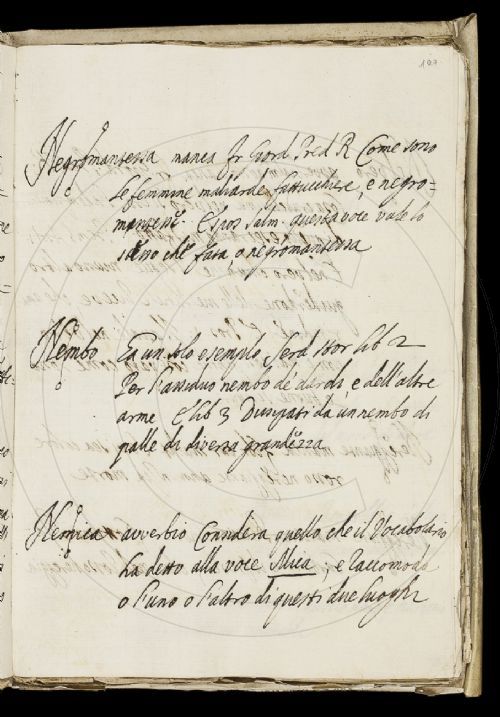 107
Negromantessa manca fr Giord. Pred. R Come sono
le femmine maliarde, fattucchiere, e negro-
mantesse. Espos. Salm. questa voce vale lo
stesso che fata, o negromantessa
Nembo Ha un solo esempio, Serd. stor lib 2
Per l'assiduo nembo de' dardi, e dell'altre
arme E lib 3 Dissipati da un nembo di
palle di diversa grandezza
Nemica avverbio Considera quello che il Vocabolario
ha detto alla voce Mica; e raccomoda
o l'uno o l'altro di questi due luoghi